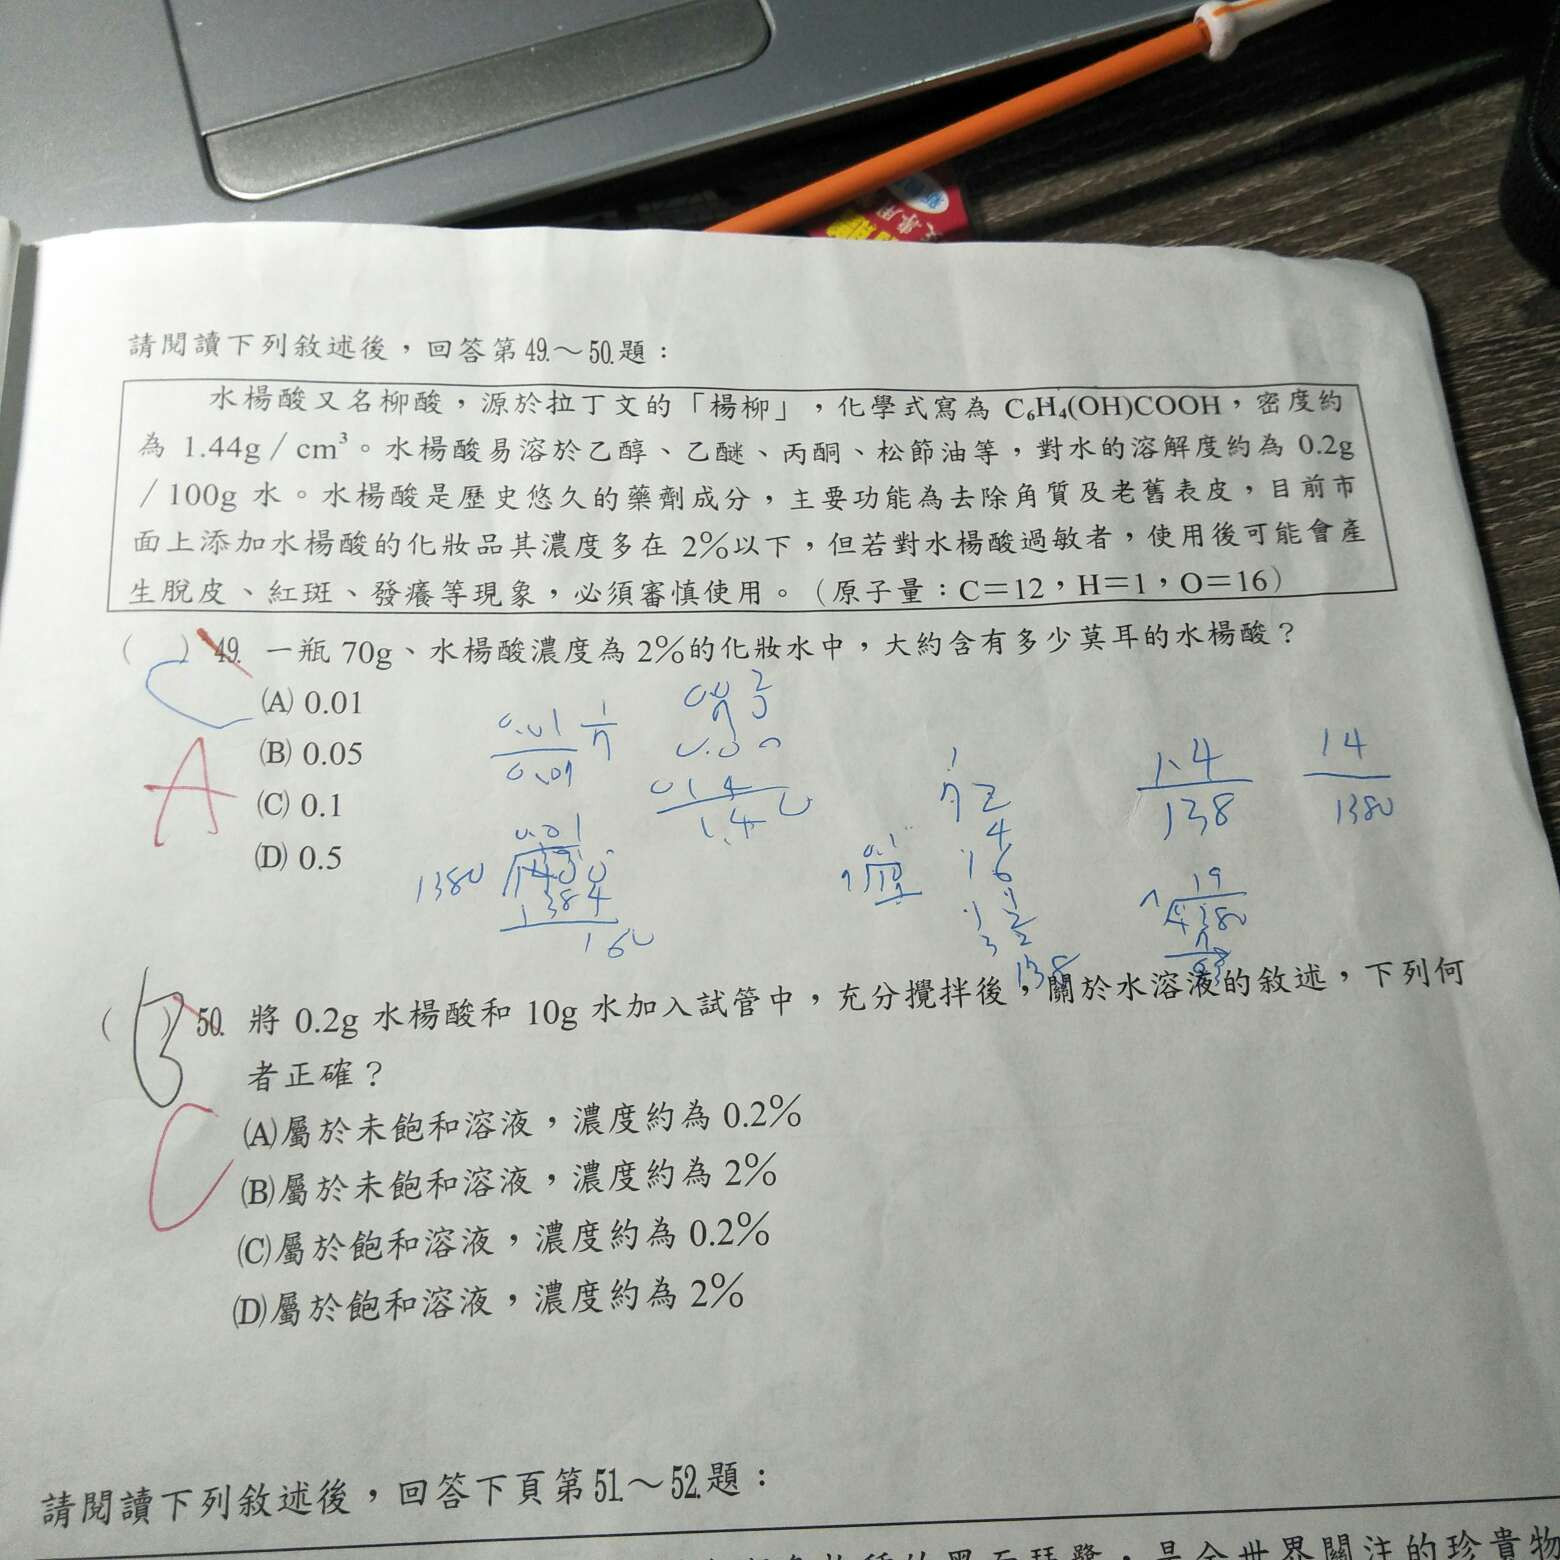 請閱讀下列敘述後，回答第49.～50.題：
水楊酸又名柳酸，源於拉丁文的「楊柳」，化學式寫為 C₆H₄(OH)COOH，密度約
為 1.44g／cm³。水楊酸易溶於乙醇、乙醚、丙酮、松節油等，對水的溶解度約為 0.2g
／100g 水。水楊酸是歷史悠久的藥劑成分，主要功能為去除角質及老舊表皮，目前市
面上添加水楊酸的化妝品其濃度多在 2％以下，但若對水楊酸過敏者，使用後可能會產
生脫皮、紅斑、發癢等現象，必須審慎使用。（原子量：C＝12，H＝1，O＝16）
（　）49. 一瓶 70g、水楊酸濃度為 2％的化妝水中，大約含有多少莫耳的水楊酸？
C
(A) 0.01
(B) 0.05
A
(C) 0.1
(D) 0.5
1.4
138
14
1380
0.01
1380
138
（　）50. 將 0.2g 水楊酸和 10g 水加入試管中，充分攪拌後，關於水溶液的敘述，下列何
B
者正確？
(A)屬於未飽和溶液，濃度約為 0.2％
C
(B)屬於未飽和溶液，濃度約為 2％
(C)屬於飽和溶液，濃度約為 0.2％
(D)屬於飽和溶液，濃度約為 2％
請閱讀下列敘述後，回答下頁第51.～52.題：
是全世界關注的珍貴物